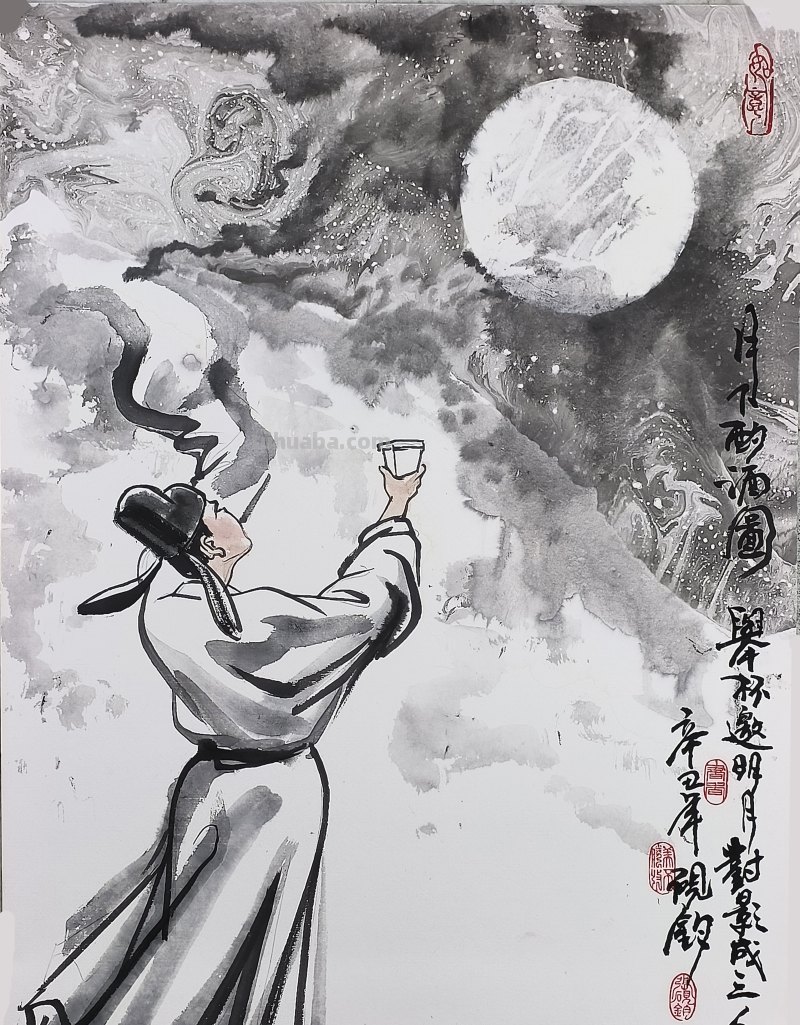 月下酌酒圖 舉杯邀明月 對影成三人
辛丑年 硯鈞
huaba.com